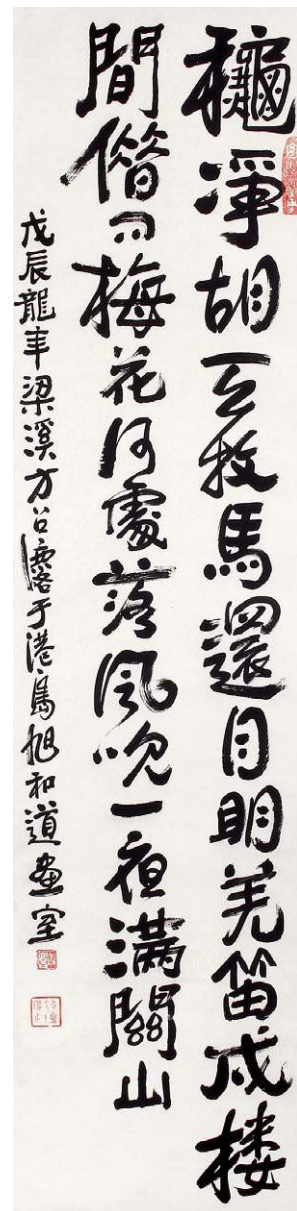 穐淨胡天牧馬還月明羌笛戍楼
間借問梅花何處落風吹一夜滿關山
戊辰龍年梁溪方召麐于港島旭和道畫室